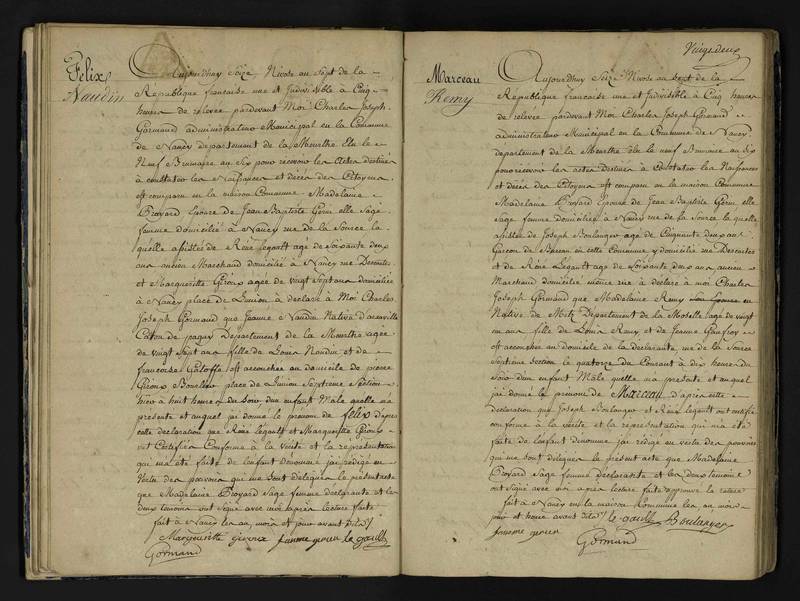 Felix
Naudin
Aujourdhuy Seize Nivose an Sept de la
République francaise une et Indivisible à Cinq
heures de relevée pardevant Moi Charles Joseph
Gormand administrateur Municipal en la Commune
de Nancy departement de la Meurthe Elu le
Neuf Brumaire an Six pour recevoir les Actes destinés
à constater les Naissances et décès des Citoyens
est comparu en la maison Commune Madelaine
Broyard Epouse de Jean Baptiste Gerin elle Sage
femme domiciliée à Nancy rue de la Source la
quelle assistée de Réné Legault age de Soixante deux
ans ancien Marchand domicilié à Nancy rue Descartes
et Marguerite Giroux agée de vingt Sept ans domiciliée
à Nancy place de Lunion à déclaré à Moi Charles
Joseph Gormand que Jeanne Naudin Native
Canton de Departement de la Meurthe agée
de vingt Sept ans fille de Louis Naudin et de
francoise est accouchee au domicile de pierre
Giroux place de Lunion Septieme Section
hier à huit heures du Soir dun enfant Male quelle ma
présenté et auquel jai donné le prénom de felix d'apres
cette declaration que Réné Legault et Marguerite Giroux
ont Certifiés Conforme à la vérité et la représentation
qui ma été faite de lenfant dénommé jai rédigé en
Vertu des pouvoirs qui me sont délégués le présent acte
que Madelaine Broyard Sage femme déclarante et les
deux temoins ont Signé avec moi après lecture faite
fait à Nancy les an mois et jour avant dits
Marguerite giroux femme gerin le gault
Gormand
Vingt deux
Marceau
Remy
Aujourdhuy Seize Nivose an Sept de la
République francaise une et Indivisible à Cinq heures
de relevée pardevant Moi Charles Joseph Gormand
administrateur Municipal en la Commune de Nancy
departement de la Meurthe Elu le neuf Brumaire an Six
pour recevoir les actes destinés à constater les Naissances
et décès des Citoyens est comparu en la maison Commune
Madelaine Broyard Epouse de Jean Baptiste Gerin elle
Sage femme domiciliée à Nancy rue de la Source la quelle
assistée de Joseph Boulanger age de Cinquante deux ans
Garcon de Bureau en cette Commune y domicilié rue Descartes
et de Réné Legault age de Soixante deux ans ancien
Marchand domicilié même rue à déclaré à moi Charles
Joseph Gormand que Madelaine Remy
Native de Metz Departement de la Moselle agée de vingt
un ans fille de Louis Remy et de Jeanne Gaufroy
est accouchee au domicile de la déclarante rue de la Source
Septieme Section le quatorze du Courant à dix heures du
Soir d'un enfant Male quelle ma présenté et auquel
jai donné le prénom de Marceau d'apres cette
declaration que Joseph Boulanger et Réné Legault ont certifié
conforme à la vérité et la représentation qui ma été
faite de lenfant dénommé jai rédigé en vertu des pouvoirs
qui me sont délégués le présent acte que Madelaine
Broyard Sage femme déclarante et les deux temoins
ont signé avec moi après lecture faite approuvé la rature
fait à Nancy en la maison Commune les an mois
jour et heure avant dits le gault Boulanger
femme gerin
Gormand